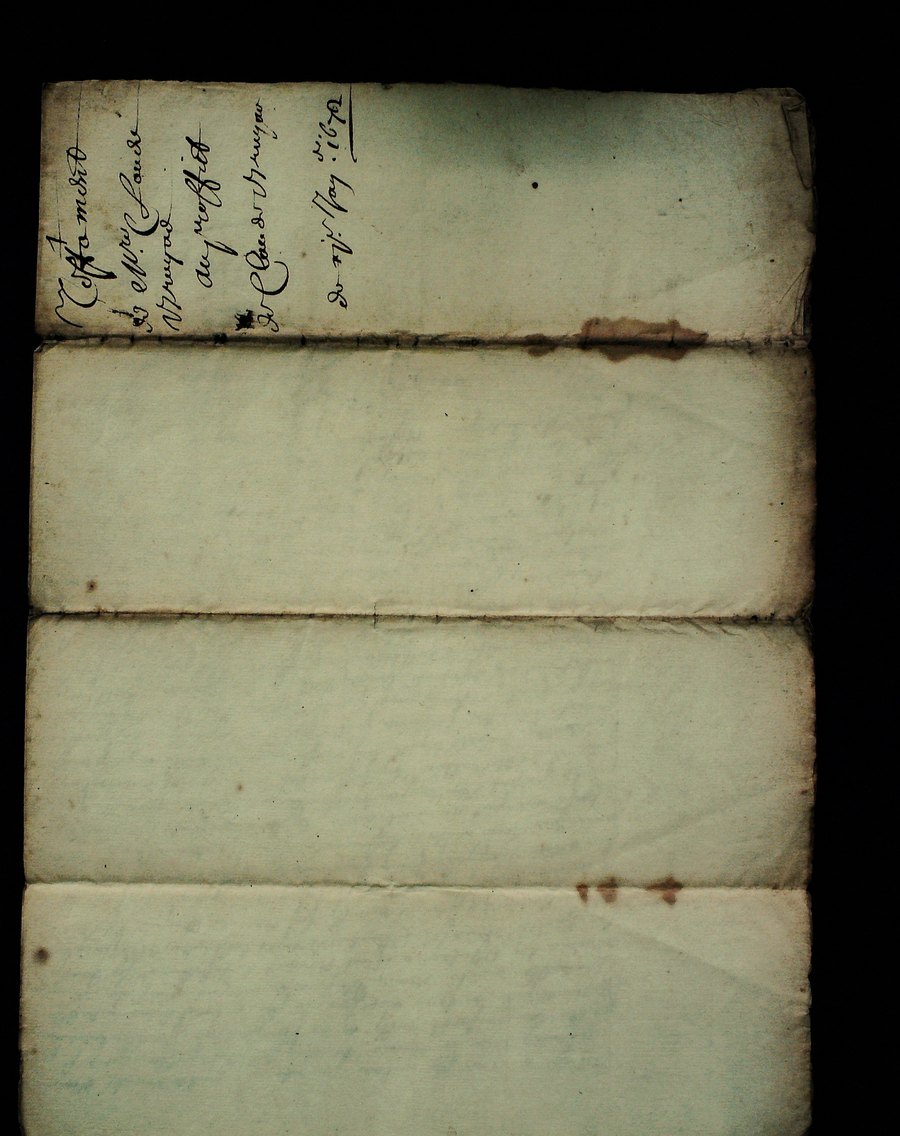 Testament
de Mre Claude
Vrayod
au proffict
de Claude Vrayod
du xje May 1672